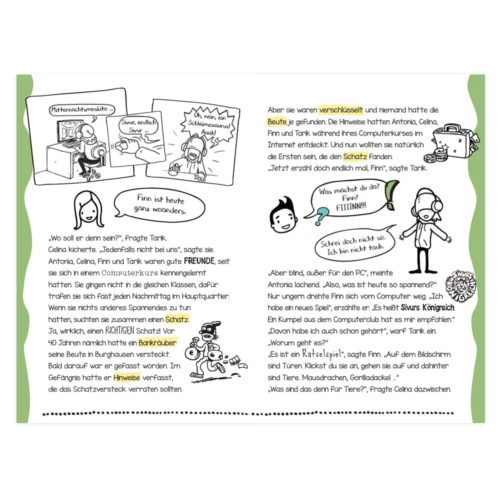 Mitternachtsmoskito ...
Sivur, endlich
Sivur ...
Oh, nein, ein
Schleimosaurus!
Aaah!
Finn ist heute
ganz woanders.
„Wo soll er denn sein?“, fragte Tarik.
Celina kicherte. „Jedenfalls nicht bei uns“, sagte sie.
Antonia, Celina, Finn und Tarik waren gute FREUNDE, seit
sie sich in einem Computerkurs kennengelernt
hatten. Sie gingen nicht in die gleichen Klassen, dafür
trafen sie sich fast jeden Nachmittag im Hauptquartier.
Wenn sie nichts anderes Spannendes zu tun
hatten, suchten sie zusammen einen Schatz.
Ja, wirklich, einen RICHTIGEN Schatz! Vor
40 Jahren nämlich hatte ein Bankräuber
seine Beute in Burghausen versteckt.
Bald darauf war er gefasst worden. Im
Gefängnis hatte er Hinweise verfasst,
die das Schatzversteck verraten sollten.
Aber sie waren verschlüsselt und niemand hatte die
Beute je gefunden. Die Hinweise hatten Antonia, Celina,
Finn und Tarik während ihres Computerkurses im
Internet entdeckt. Und nun wollten sie natürlich
die Ersten sein, die den Schatz fanden.
„Jetzt erzähl doch endlich mal, Finn“, sagte Tarik.
Was machst du da?
Finn?
FIIIINNN!!!
Schrei doch nicht so.
Ich bin nicht taub.
„Aber blind, außer für den PC“, meinte
Antonia lachend. „Also, was ist heute so spannend?“
Nur ungern drehte Finn sich vom Computer weg. „Ich
habe ein neues Spiel“, erzählte er. „Es heißt Sivurs Königreich.
Ein Kumpel aus dem Computerclub hat es mir empfohlen.“
„Davon habe ich auch schon gehört“, warf Tarik ein.
„Worum geht es?“
„Es ist ein Rätselspiel“, sagte Finn. „Auf dem Bildschirm
sind Türen. Klickst du sie an, gehen sie auf und dahinter
sind Tiere. Mausdrachen, Gorilladackel ...“
„Was sind das denn für Tiere?“, fragte Celina dazwischen.